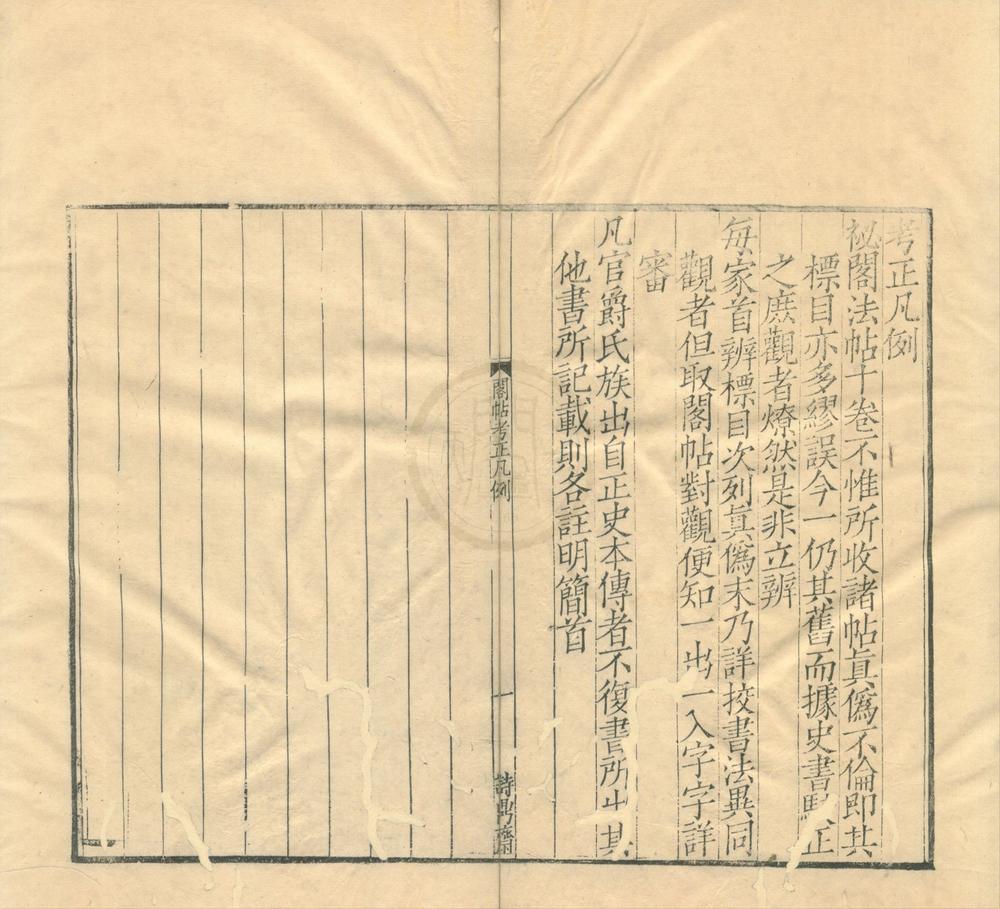 考正凡例
祕閣法帖十卷不惟所收諸帖眞僞不倫即其
標目亦多繆誤今一仍其舊而據史書駁正
之庶觀者燎然是非立辨
每家首辨標目次列眞僞末乃詳挍書法異同
觀者但取閣帖對觀便知一出一入字字詳
審
凡官爵氏族出自正史本傳者不復書所出其
他書所記載則各註明簡首
閣帖考正凡例
一
詩鼎齋